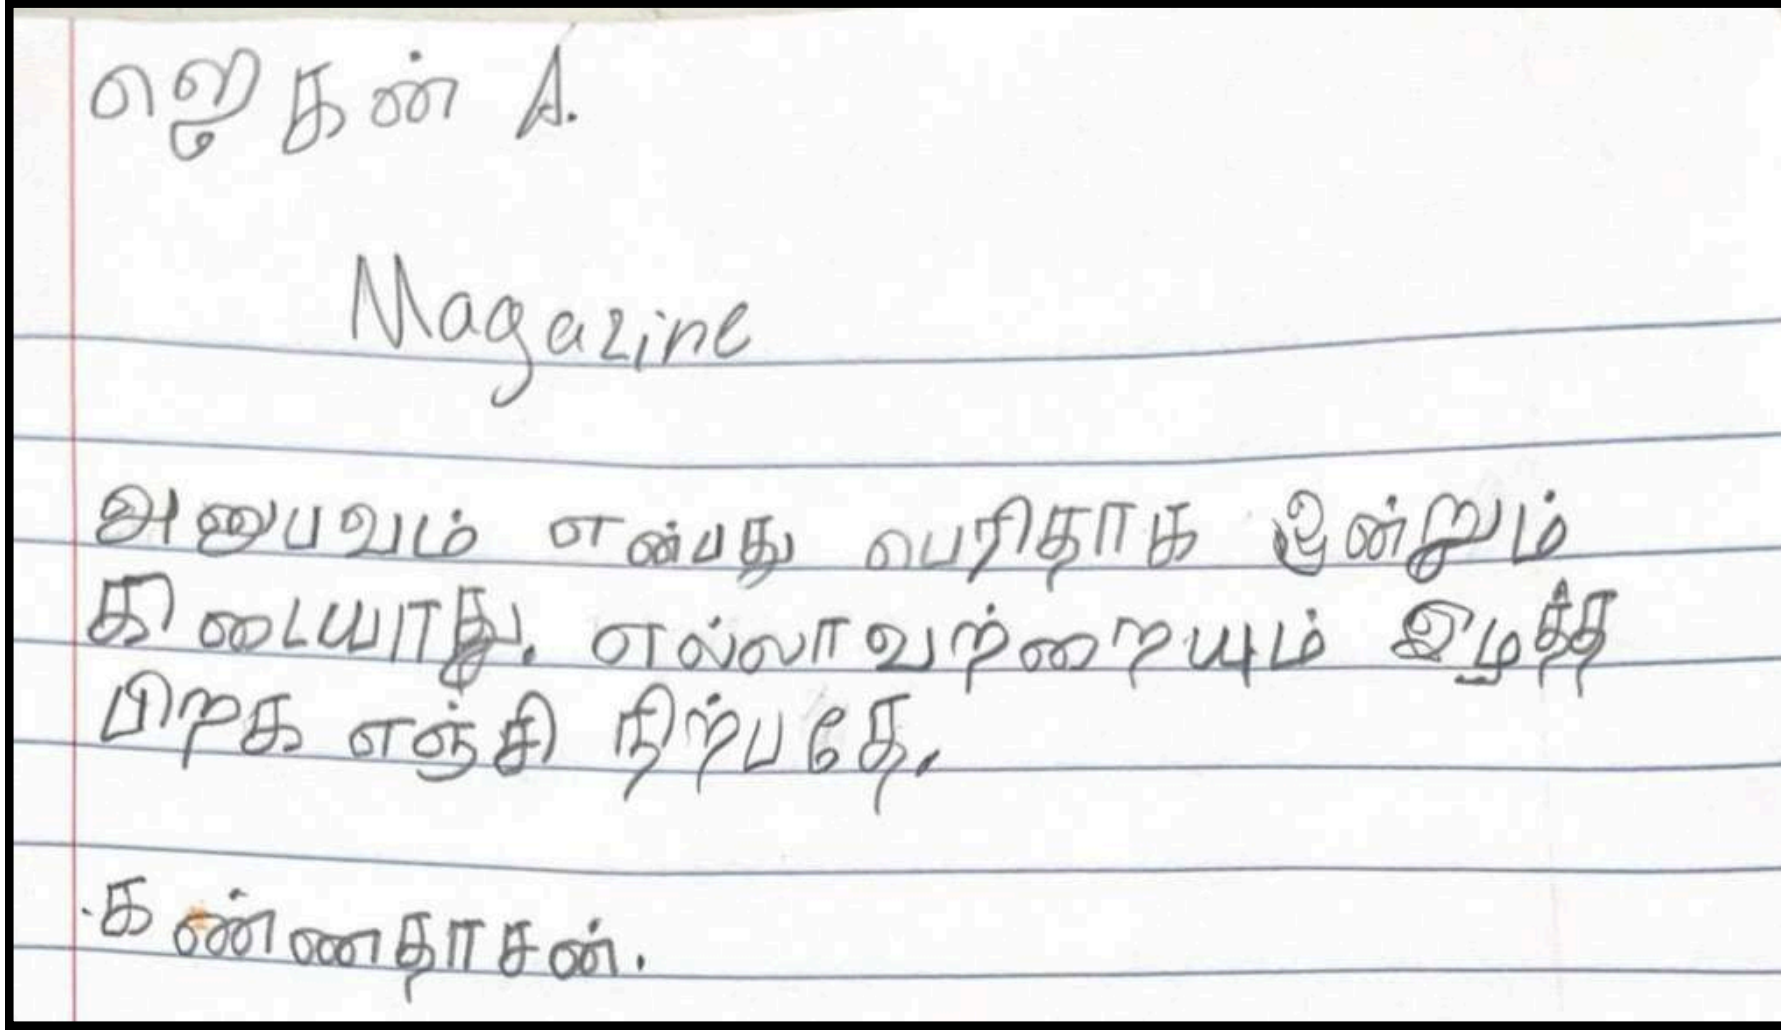 ஜெகன் A.
Magazine
அனுபவம் என்பது பெரிதாக ஒன்றும்
கிடையாது. எல்லாவற்றையும் இழந்த
பிறக எஞ்சி நிற்பதே.
.கண்ணதாசன்.